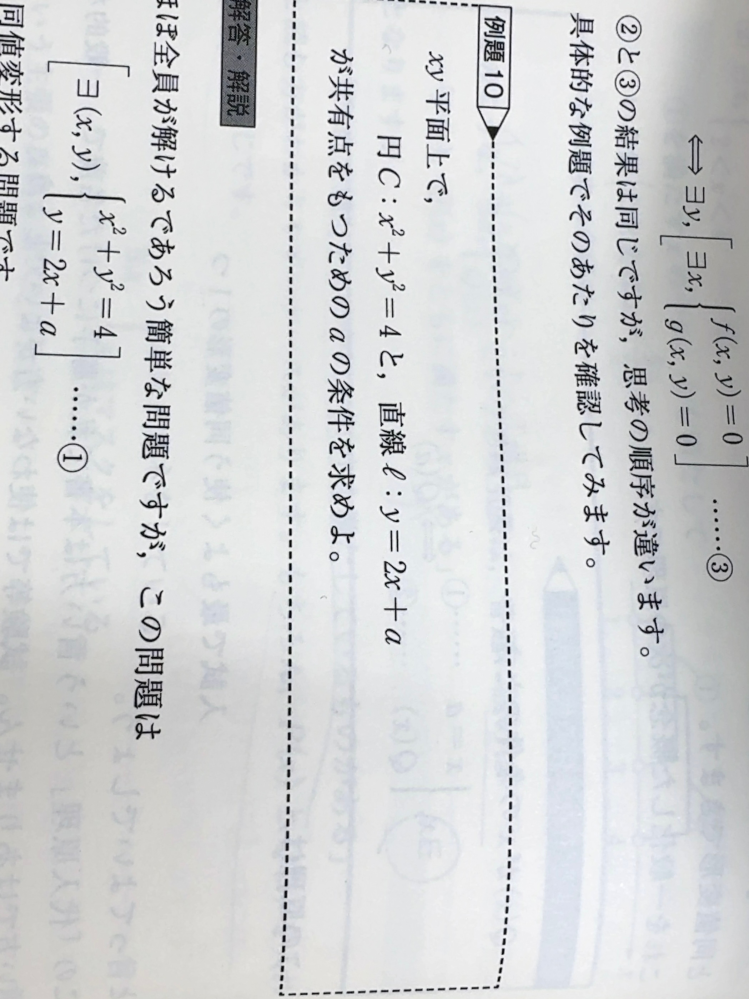 ⇔ ∃y, [∃x, { f(x, y) = 0
g(x, y) = 0 ] ……③
②と③の結果は同じですが, 思考の順序が違います。
具体的な例題でそのあたりを確認してみます。
例題 10
xy 平面上で,
円 C : x² + y² = 4 と, 直線 ℓ : y = 2x + a
が共有点をもつための a の条件を求めよ。
解答・解説
ほぼ全員が解けるであろう簡単な問題ですが, この問題は
[∃(x, y), { x² + y² = 4
y = 2x + a ] ……①
同値変形する問題です